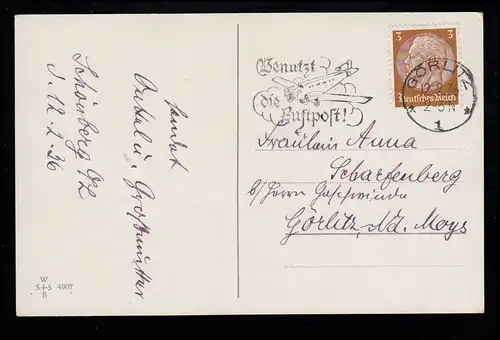 sendet
Onkel u. Großmutter
Schönberg O/L
d. 12.2.36
W
S+S 4907
B
Benutzt
die
Luftpost!
3 3
Deutsches Reich
GÖRLITZ
1
Fräulein Anna
Scharfenberg
b/ Herrn Geschwinde
Görlitz, Nd. Moys